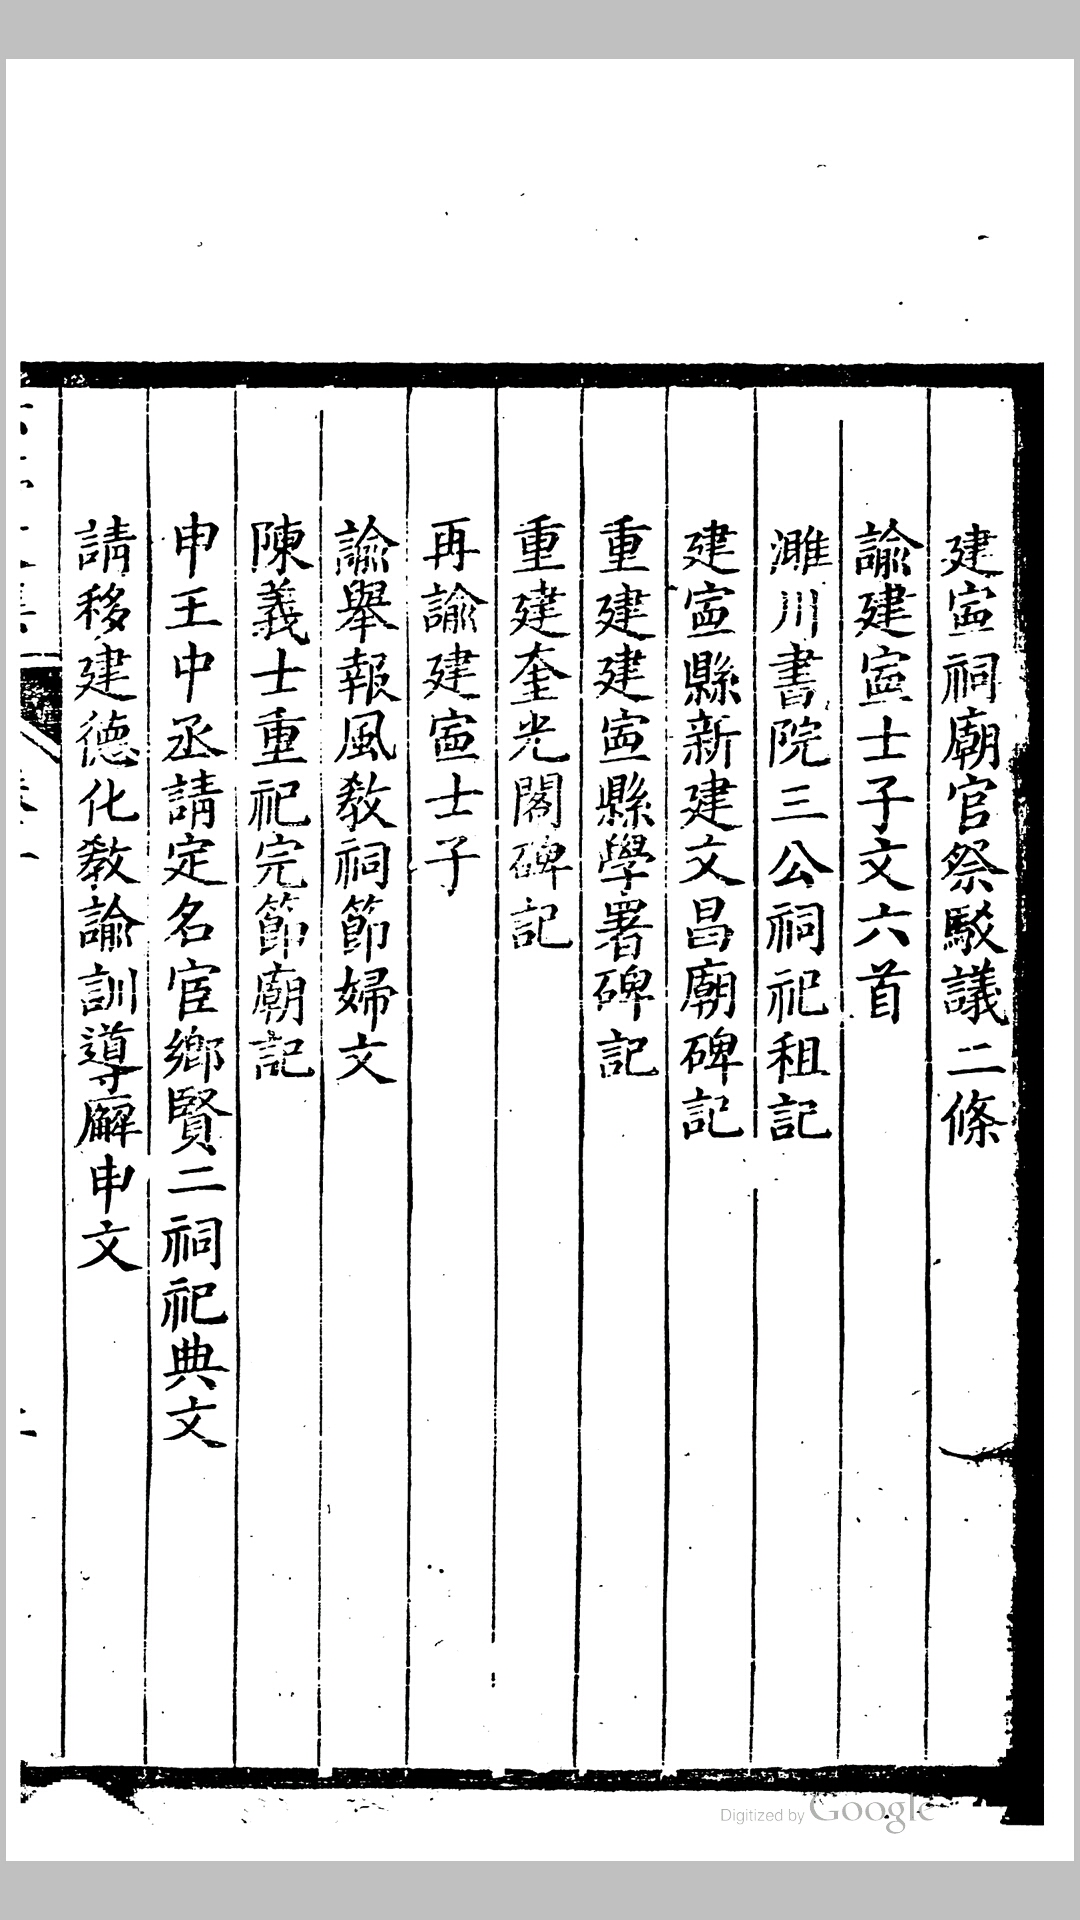 建寍祠廟官祭駁議二條
諭建寍士子文六首
濉川書院三公祠祀租記
建寍縣新建文昌廟碑記
重建建寍縣學署碑記
重建奎光閣碑記
再諭建寍士子
諭舉報風敎祠節婦文
陳義士重祀完節廟記
申王中丞請定名宦鄉賢二祠祀典文
請移建德化敎諭訓導廨申文
Digitized by Google